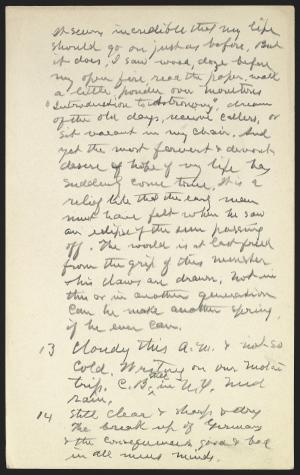 It seems incredible that my life
should go on just as before, But
it does, I saw wood, doze before
my open fire, read the paper, walk
a little, ponder over Moulton's
"Introduction to Astronomy", dream
of the old days, receive callers, or
sit vacant in my chair. And
yet the most fervent & devout
desire & hope of my life has
suddenly come true. It is a
relief like that the early man
must have felt when he saw
an eclipse of the sun passing
off. The world is at last freed
from the grip of this monster
& his claws are drawn. Not in
this or in another generation
can he make another spring,
if he ever can.
13 Cloudy this A.M. & not so
cold. Writing on our Motor
trip. C. B. still in N.Y. Need
rain.
14 Still clear & sharp & dry
The break up of Germany
& the consequences good & bad
in all mens minds.